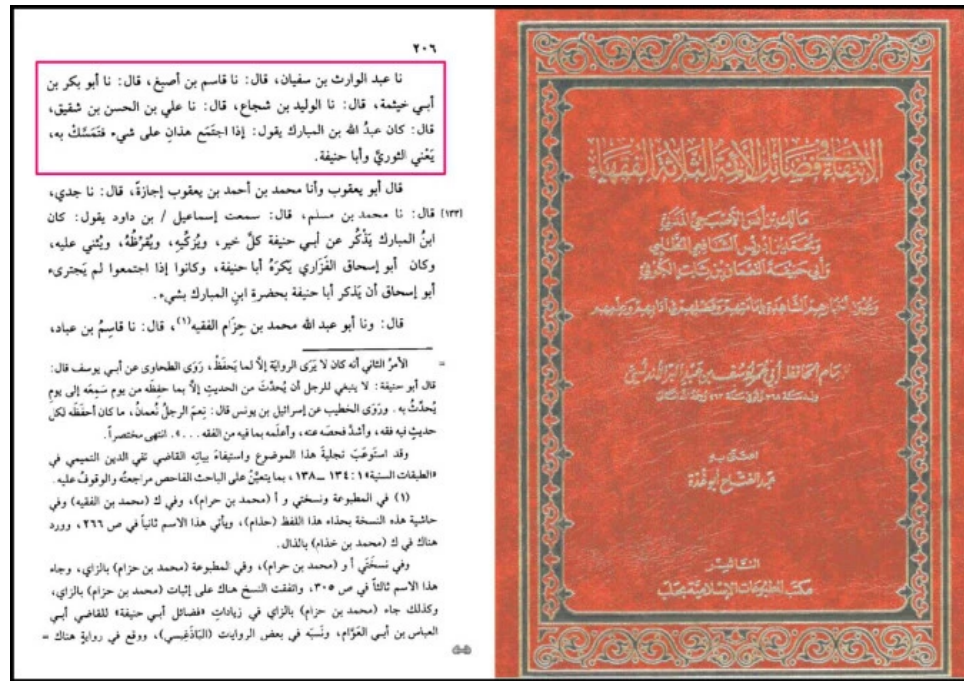 ٢٠٦
نا عبد الوارث بن سفيان، قال: نا قاسم بن أصبغ، قال: نا أبو بكر بن
أبي خيثمة، قال: نا الوليد بن شجاع، قال: نا علي بن الحسن بن شقيق،
قال: كان عبدُ الله بن المبارك يقول: إذا اجتَمَع هذانِ على شيء فتَمَسَّكْ به،
يَعْني الثوريَّ وأبا حنيفة.
قال أبو يعقوب وأنا محمد بن أحمد بن يعقوب إجازةً، قال: نا جدي،
[١٣٣] قال: نا محمد بن مسلم، قال: سمعت إسماعيل / بن داود يقول: كان
ابنُ المبارك يَذْكُر عن أبي حنيفة كلَّ خير، ويُزَكِّيهِ، ويُقَرِّظُهُ، ويُثني عليه،
وكان أبو إسحاق الفَزَاري يَكرَهُ أبا حنيفة، وكانوا إذا اجتمعوا لم يَجترىء
أبو إسحاق أن يَذكر أبا حنيفة بحضرة ابنِ المبارك بشيء.
قال: ونا أبو عبد الله محمد بن حِزَام الفقيه(١)، قال: نا قاسِمُ بن عباد،
= الأمرُ الثاني أنه كان لا يَرَى الروايةَ إلَّا لما يَحفَظُ، رَوَى الطحاوي عن أبي يوسف قال:
قال أبو حنيفة: لا ينبغي للرجل أن يُحدِّثَ من الحديثِ إلَّا بما حفِظَه من يومِ سَمِعَه إلى يومِ
يُحدِّثُ به. ورَوَى الخطيب عن إسرائيل بن يونس قال: نِعمَ الرجلُ نُعمانُ، ما كان أحفَظَه لكل
حديثٍ فيه فقه، وأشدَّ فحصَه عنه، وأعلَمه بما فيه من الفقه . . .». انتهى مختصراً.
وقد استَوعَبَ تجليةَ هذا الموضوع واستيفاءَ بيانِه القاضي تقي الدين التميمي في
«الطبقات السنية» ١:١٣٤ ــ ١٣٨، بما يتعيَّنُ على الباحث الفاحص مراجعتُه والوقوفُ عليه.
(١) في المطبوعة ونسختي و أ (محمد بن حرام)، وفي ك (محمد بن الفقيه) وفي
حاشية هذه النسخة بحذاء هذا اللفظ (حذام)، ويأتي هذا الاسم ثانياً في ص ٢٦٦، وورد
هناك في ك (محمد بن خذام) بالذال.
وفي نسخَتَي أ و (محمد بن حرام)، وفي المطبوعة (محمد بن حزام) بالزاي، وجاء
هذا الاسم ثالثاً في ص ٣٠٥، واتفقت النسخ هناك على إثبات (محمد بن حزام) بالزاي،
وكذلك جاء (محمد بن حزام) بالزاي في زيادات «فضائل أبي حنيفة» للقاضي أبي
العباس بن أبي العَوَّام، ونَسَبَه في بعض الروايات (البَاذَغِيسي)، ووقع في روايةٍ هناك =
الانتقاء في فضائل الأئمة الثلاثة الفقهاء
مالك بن أنس الأصبحي المدني
ومحمد بن إدريس الشافعي المطلبي
وأبي حنيفة النعمان بن ثابت الكوفي
وعيون أخبارهم الشاهدة بإمامتهم وفضلهم في آدابهم وعلمهم
للإمام الحافظ أبي عمر يوسف بن عبد البر الأندلسي
ولد سنة ٣٦٨ وتوفي سنة ٤٦٣ رحمه الله تعالى
اعتنى به
عبد الفتاح أبو غدة
الناشر
مكتب المطبوعات الإسلامية بحلب